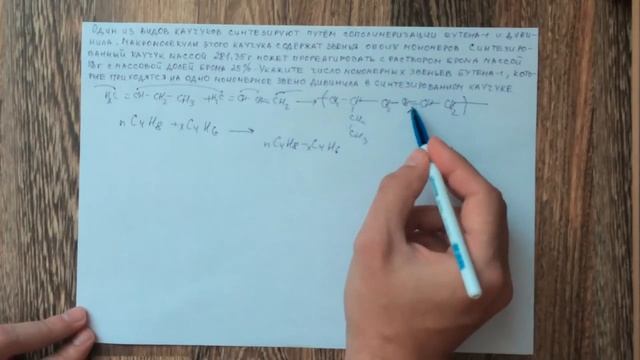 Один из видов каучуков синтезируют путём сополимеризации бутена-1 и диви-
нила. Макромолекулы этого каучука содержат звенья обоих мономеров. Синтезиро-
ванный каучук массой 281,25г может прореагировать с раствором брома массой
г с массовой долей брома 25%. Укажите число мономерных звеньев бутена-1, кото-
рые приходятся на одно мономерное звено дивинила в синтезированном каучуке
H₂C = CH - CH₂ - CH₃ + H₂C = CH - CH = CH₂ → ( CH₂ - CH - CH₂ - CH - CH₂ )
CH₂
CH₃
nC4H8 + xC4H6 →
nC4H8-xC4H6